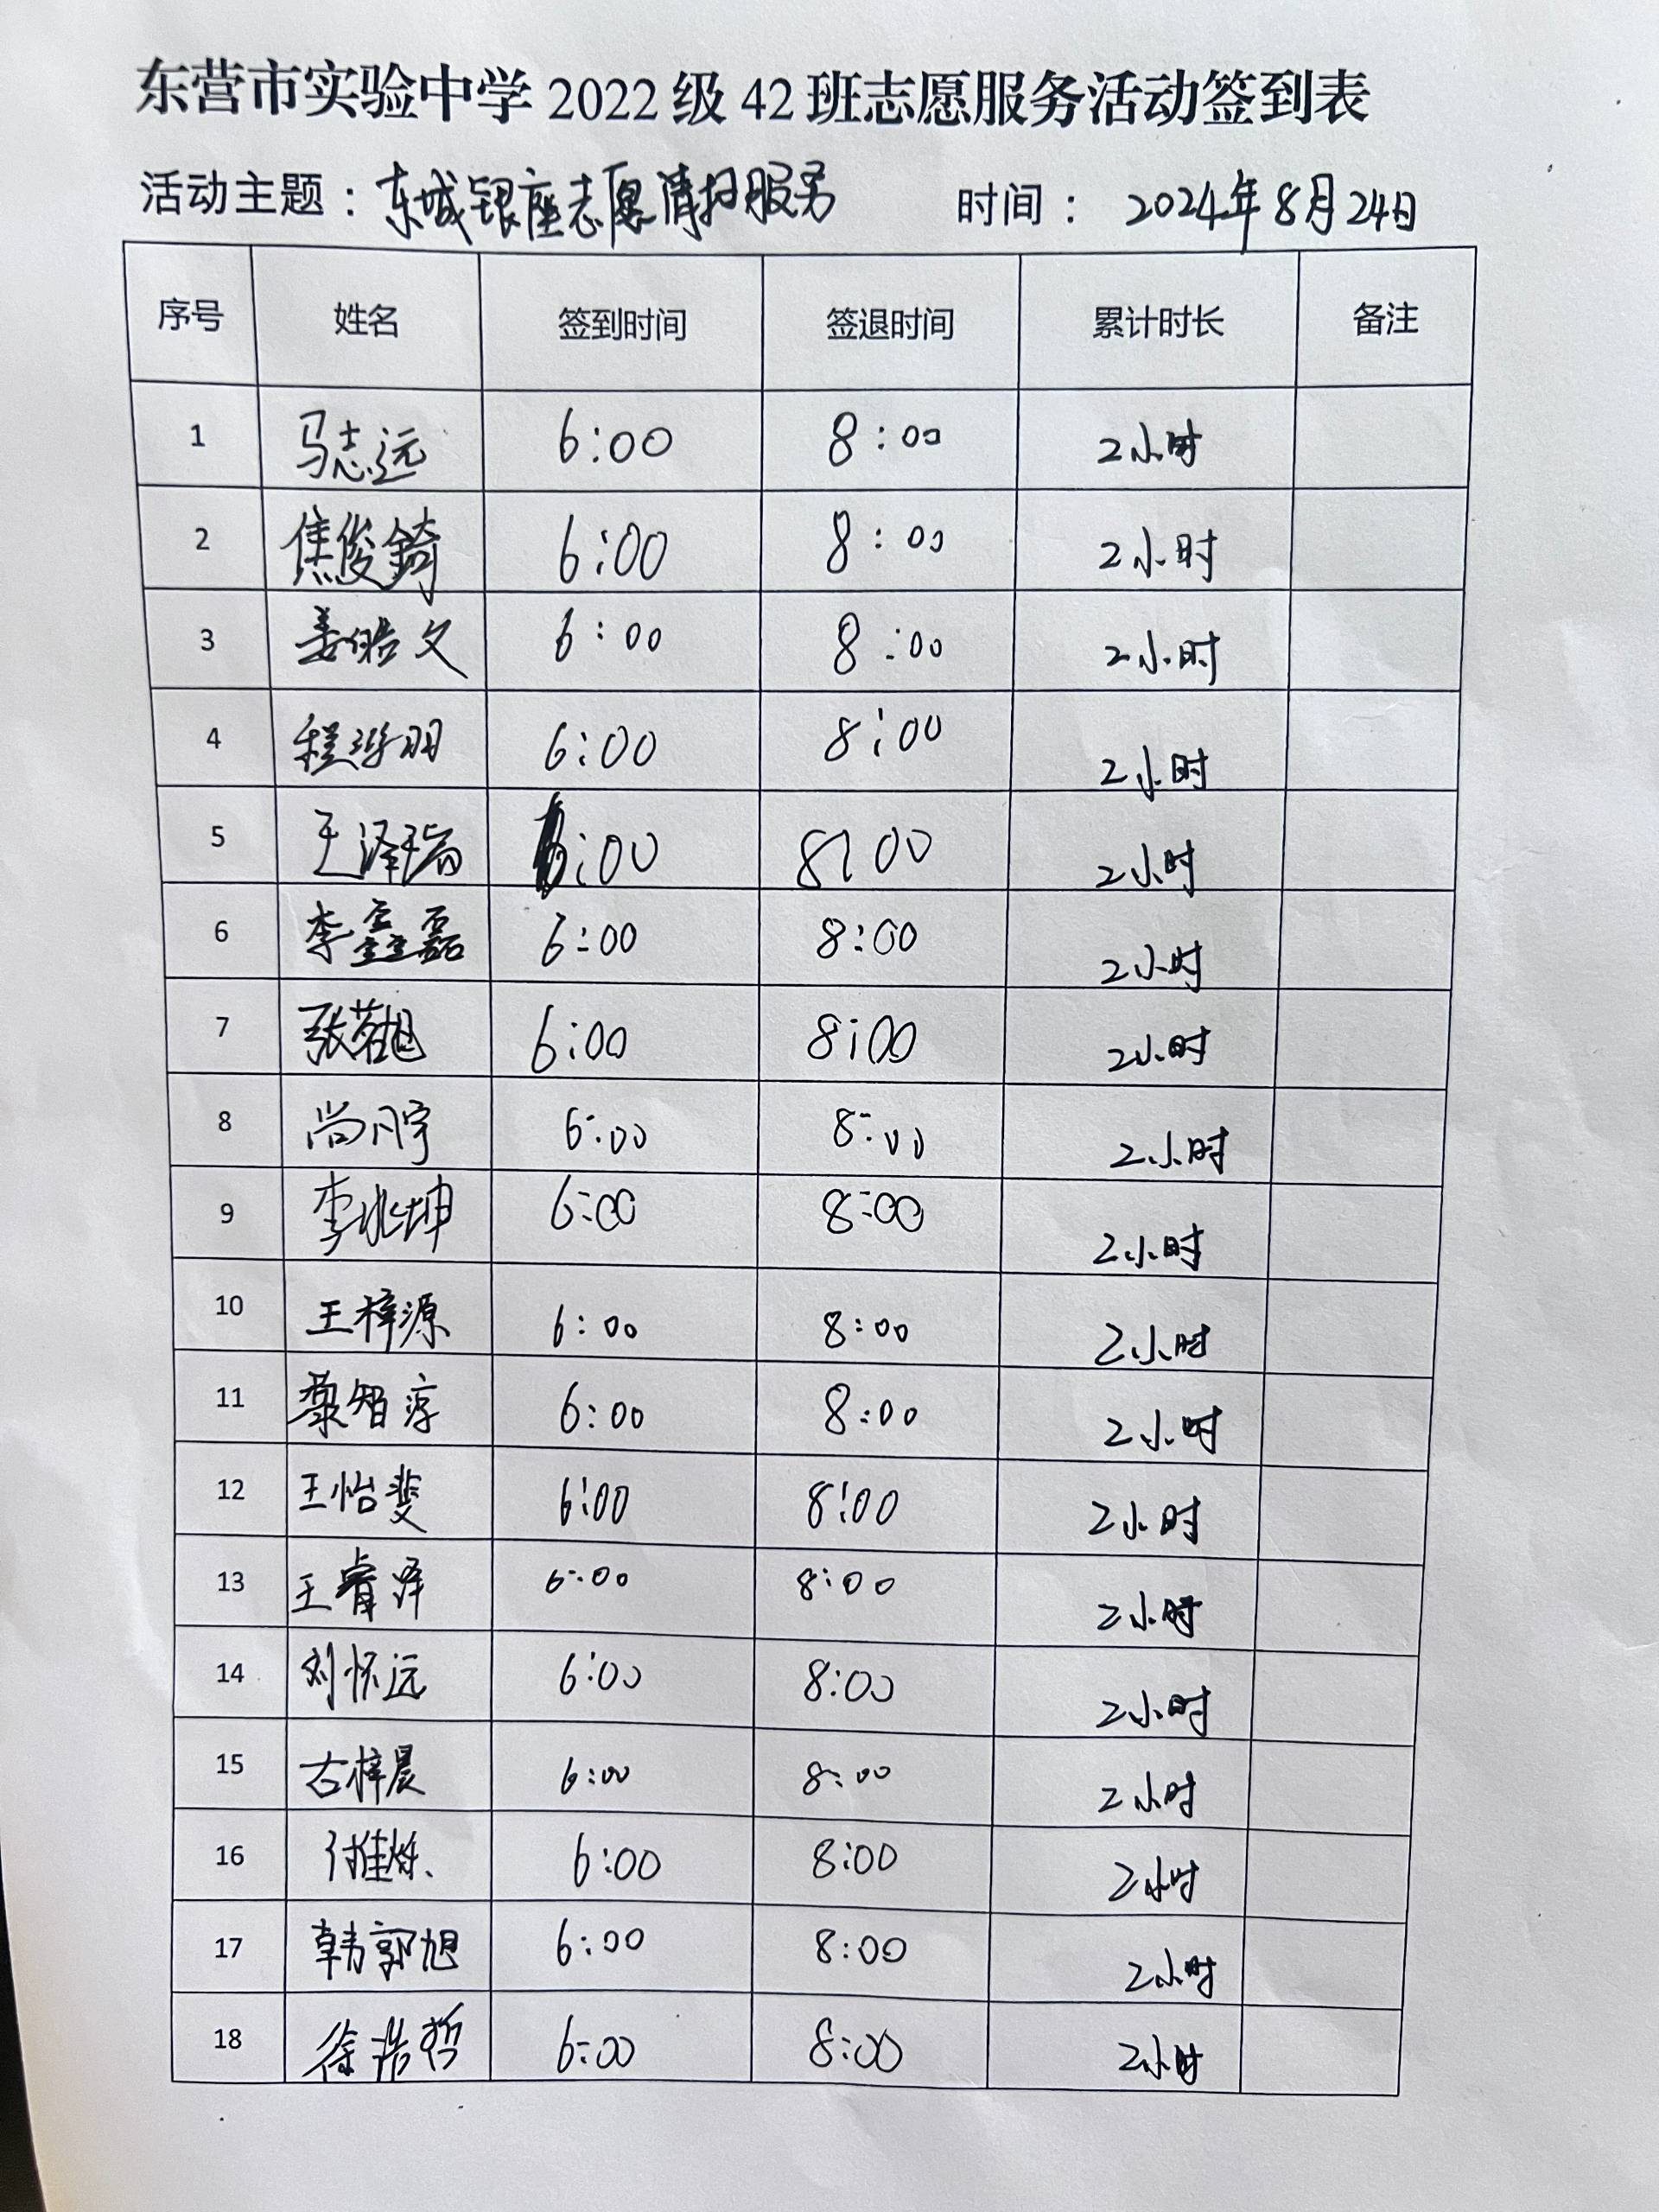 东营市实验中学2022级42班志愿服务活动签到表
活动主题：东城银座志愿清扫服务 时间：2024年8月24日
序号 姓名 签到时间 签退时间 累计时长 备注
1 马志远 6:00 8:00 2小时
2 焦俊錡 6:00 8:00 2小时
3 姜皓文 6:00 8:00 2小时
4 6:00 8:00 2小时
5 王泽瑞 6:00 8:00 2小时
6 李鑫磊 6:00 8:00 2小时
7 张茗旭 6:00 8:00 2小时
8 尚凡宇 6:00 8:00 2小时
9 李兆坤 6:00 8:00 2小时
10 王梓源 6:00 8:00 2小时
11 綦智淳 6:00 8:00 2小时
12 王怡斐 6:00 8:00 2小时
13 王睿泽 6:00 8:00 2小时
14 刘怀远 6:00 8:00 2小时
15 古梓晨 6:00 8:00 2小时
16 6:00 8:00 2小时
17 韩郭旭 6:00 8:00 2小时
18 徐浩哲 6:00 8:00 2小时